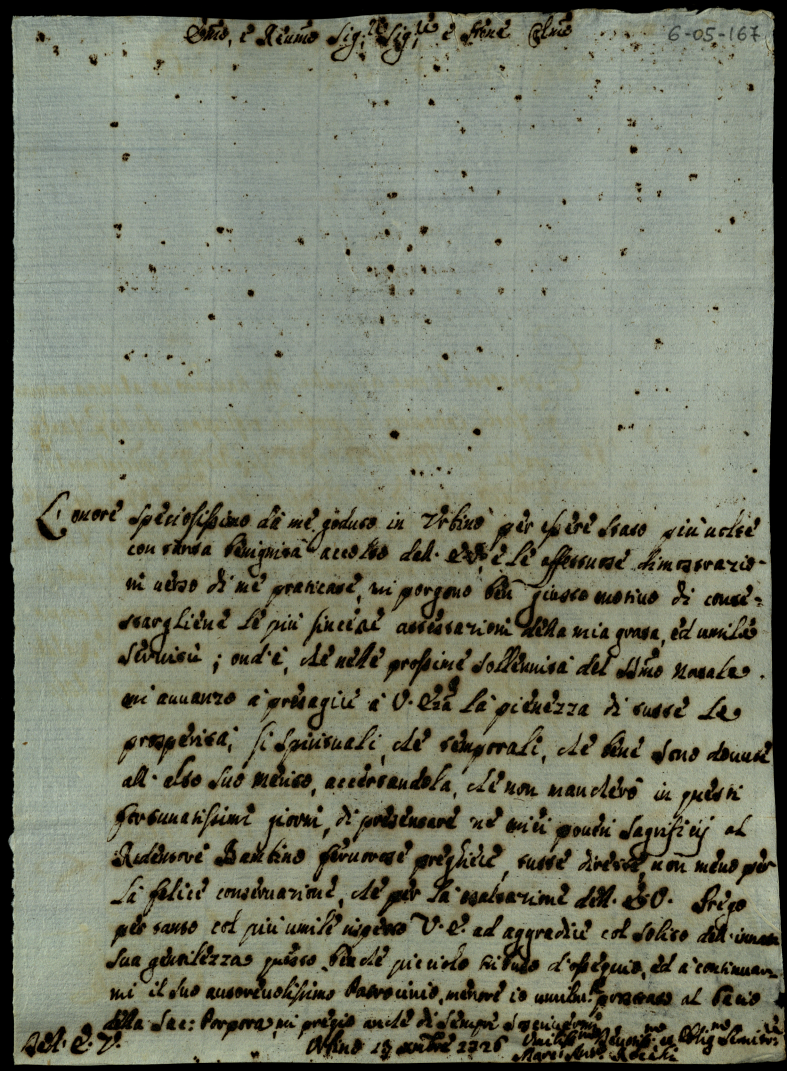 Emo, e Reumo Sig.re Sig.re e Prone Clmo
6-05-167
L'onore speciosissimo da me goduto in Urbino per essere stato più volte
con tanta benignità accolto dall' E.V., e le affettuose dimostrazio-
ni verso di me praticate, mi porgono ben giusto motivo di conte-
stargliene le più sincere attestazioni della mia grata, ed umile
servitù; ond'è, che nelle prossime sollennità del SSmo Natale
mi avvanzo à presagire à V. Eza la pienezza di tutte le
prosperità, si spirituali, che temporali, che bene sono dovute
all' alto suo merito, accertandola, che non mancherò in questi
fortunatissimi giorni, di presentare ne miei poveri Sagrificij al
Redentore Bambino fervorose preghiere, tutte dirette, non meno per
la felice conservazione, che per la esaltazione dell' E.V. Prego
per tanto col più umile rispetto V.E. ad aggradire col solito dell' innata
sua gentilezza questo, benche picciolo tributo d'ossequio, ed à continuar-
mi il suo autorevolissimo Patrocinio, mentre io umilm.te prostrato al bacio
della Sac: Porpora, mi pregio anche di sempre soscrivermi
Dell' E. V.
Umiliss.mo Devotis.mo ed Oblig.mo Servitore
13 Xmbre 1726